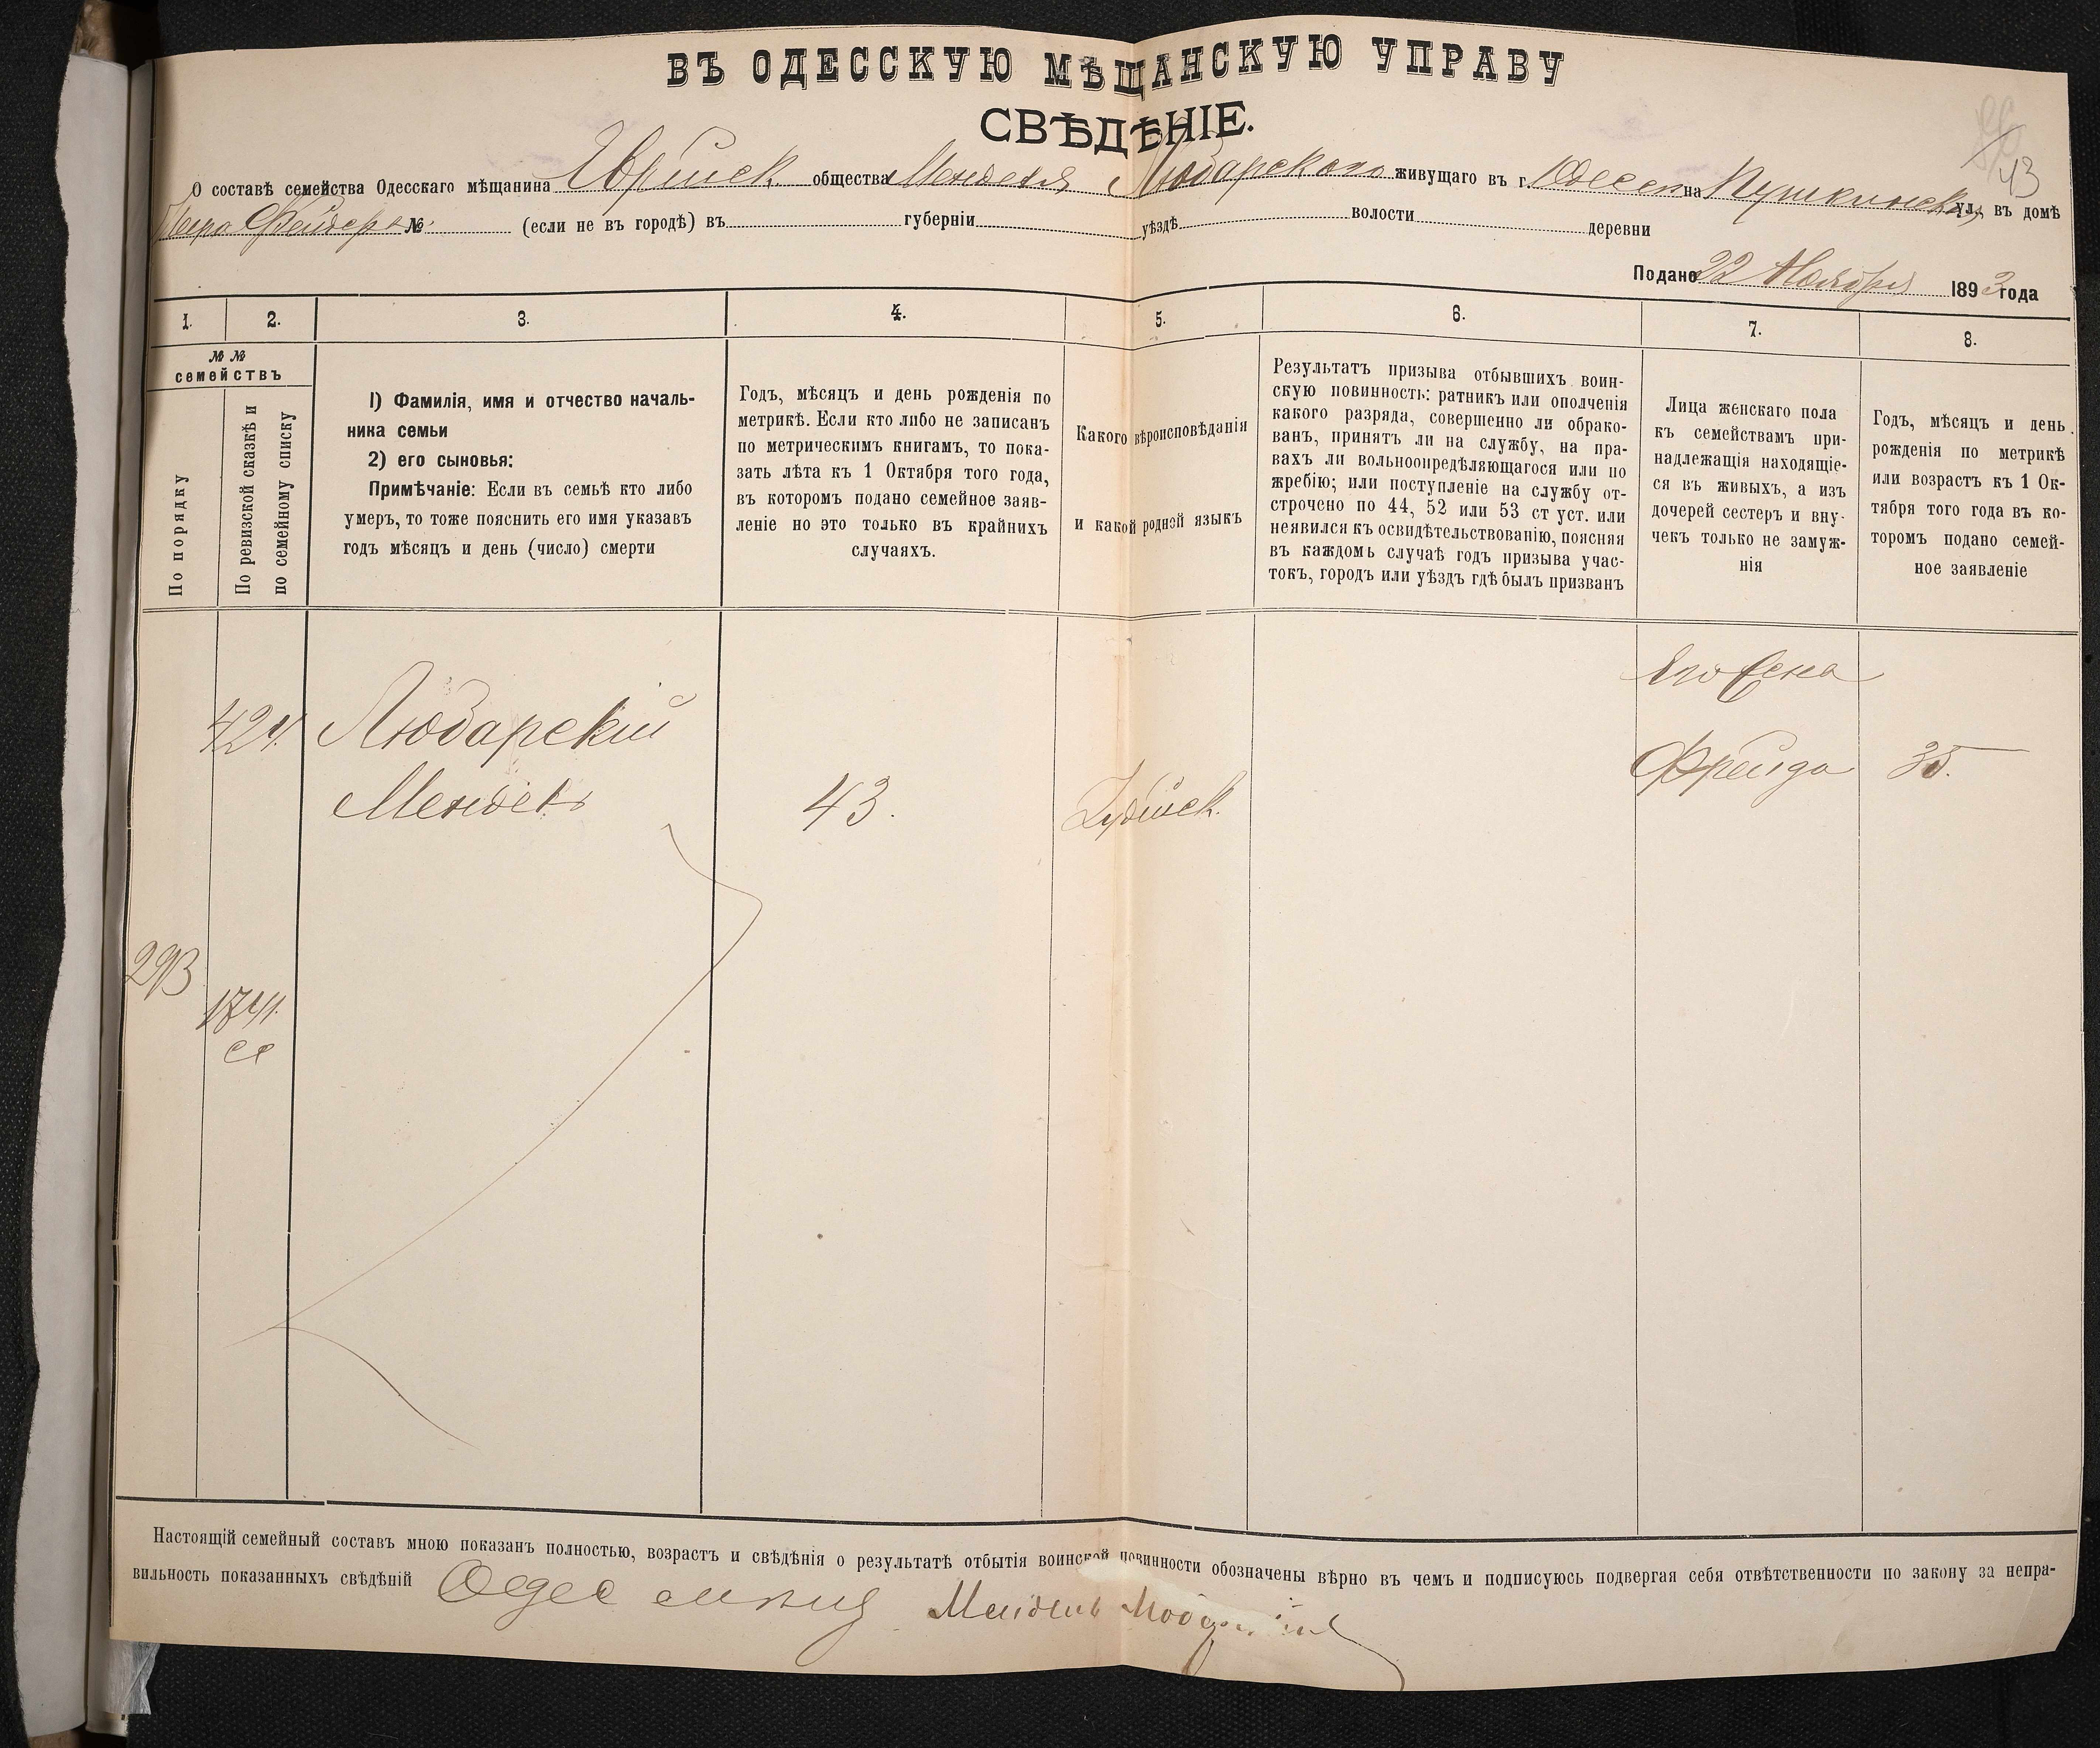 ВЪ ОДЕССКУЮ МѢЩАНСКУЮ УПРАВУ
СВѢДѢНІЕ.
43
О составѣ семейства Одесскаго мѣщанина Еврейск. общества Менделя Любарскаго живущаго въ г. Одессѣ на Пушкинской ул., въ домѣ
№ (если не въ городѣ) въ губерніи уѣздѣ волости деревни
Подано 22 Ноября 1893 года
1. 2. 3. 4. 5. 6. 7. 8.
№ №
семействъ
По порядку
По ревизской сказкѣ и
по семейному списку
1) Фамилія, имя и отчество началь-
ника семьи
2) его сыновья:
Примѣчаніе: Если въ семьѣ кто либо
умеръ, то тоже пояснить его имя указавъ
годъ мѣсяцъ и день (число) смерти
Годъ, мѣсяцъ и день рожденія по
метрикѣ. Если кто либо не записанъ
по метрическимъ книгамъ, то пока-
зать лѣта къ 1 Октября того года,
въ которомъ подано семейное заяв-
леніе но это только въ крайнихъ
случаяхъ.
Какого вѣроисповѣданія
и какой родной языкъ
Результатъ призыва отбывшихъ воин-
скую повинность: ратникъ или ополченія
какого разряда, совершенно ли обрако-
ванъ, принятъ ли на службу, на пра-
вахъ ли вольноопредѣляющагося или по
жребію; или поступленіе на службу от-
строчено по 44, 52 или 53 ст уст. или
неявился къ освидѣтельствованію, поясняя
въ каждомъ случаѣ годъ призыва учас-
токъ, городъ или уѣздъ гдѣ былъ призванъ
Лица женскаго пола
къ семействамъ при-
надлежащія находящіе-
ся въ живыхъ, а изъ
дочерей сестеръ и вну-
чекъ только не замуж-
нія
Годъ, мѣсяцъ и день
рожденія по метрикѣ
или возрастъ къ 1 Ок-
тября того года въ ко-
торомъ подано семей-
ное заявленіе
Его жена
424. Любарскій
Фрейда 35.
Мендель 43. Іудейск.
293
1741.
Настоящій семейный составъ мною показанъ полностью, возрастъ и свѣдѣнія о результатѣ отбытія воинской повинности обозначены вѣрно въ чемъ и подписуюсь подвергая себя отвѣтственности по закону за непра-
вильность показанныхъ свѣдѣній